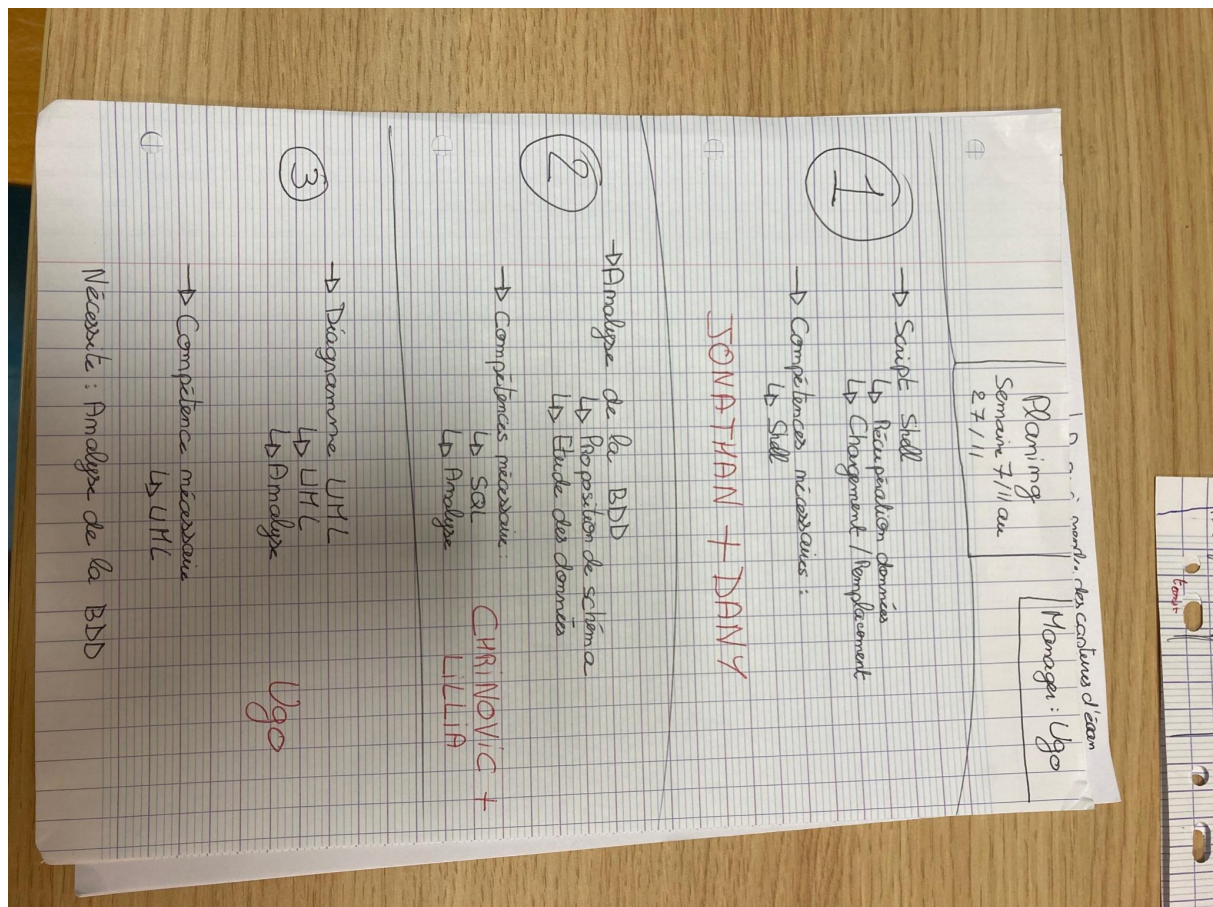 des captures d'écran
Planing
Semaine 7/11 au
27/11
Manager : Ugo
1
→ Script Shell
↳ Récupération données
↳ Chargement / Remplacement
→ Compétences nécessaires :
↳ Shell
JONATHAN + DANY
2
→ Analyse de la BDD
↳ Proposition de schéma
↳ Etude des données
→ Compétences nécessaire :
↳ SQL
↳ Analyse
CHRiNOViC +
LiLLiA
3
→ Diagramme UML
↳ UML
↳ Analyse
Ugo
→ Compétence nécessaire
↳ UML
Nécessite : Analyse de la BDD